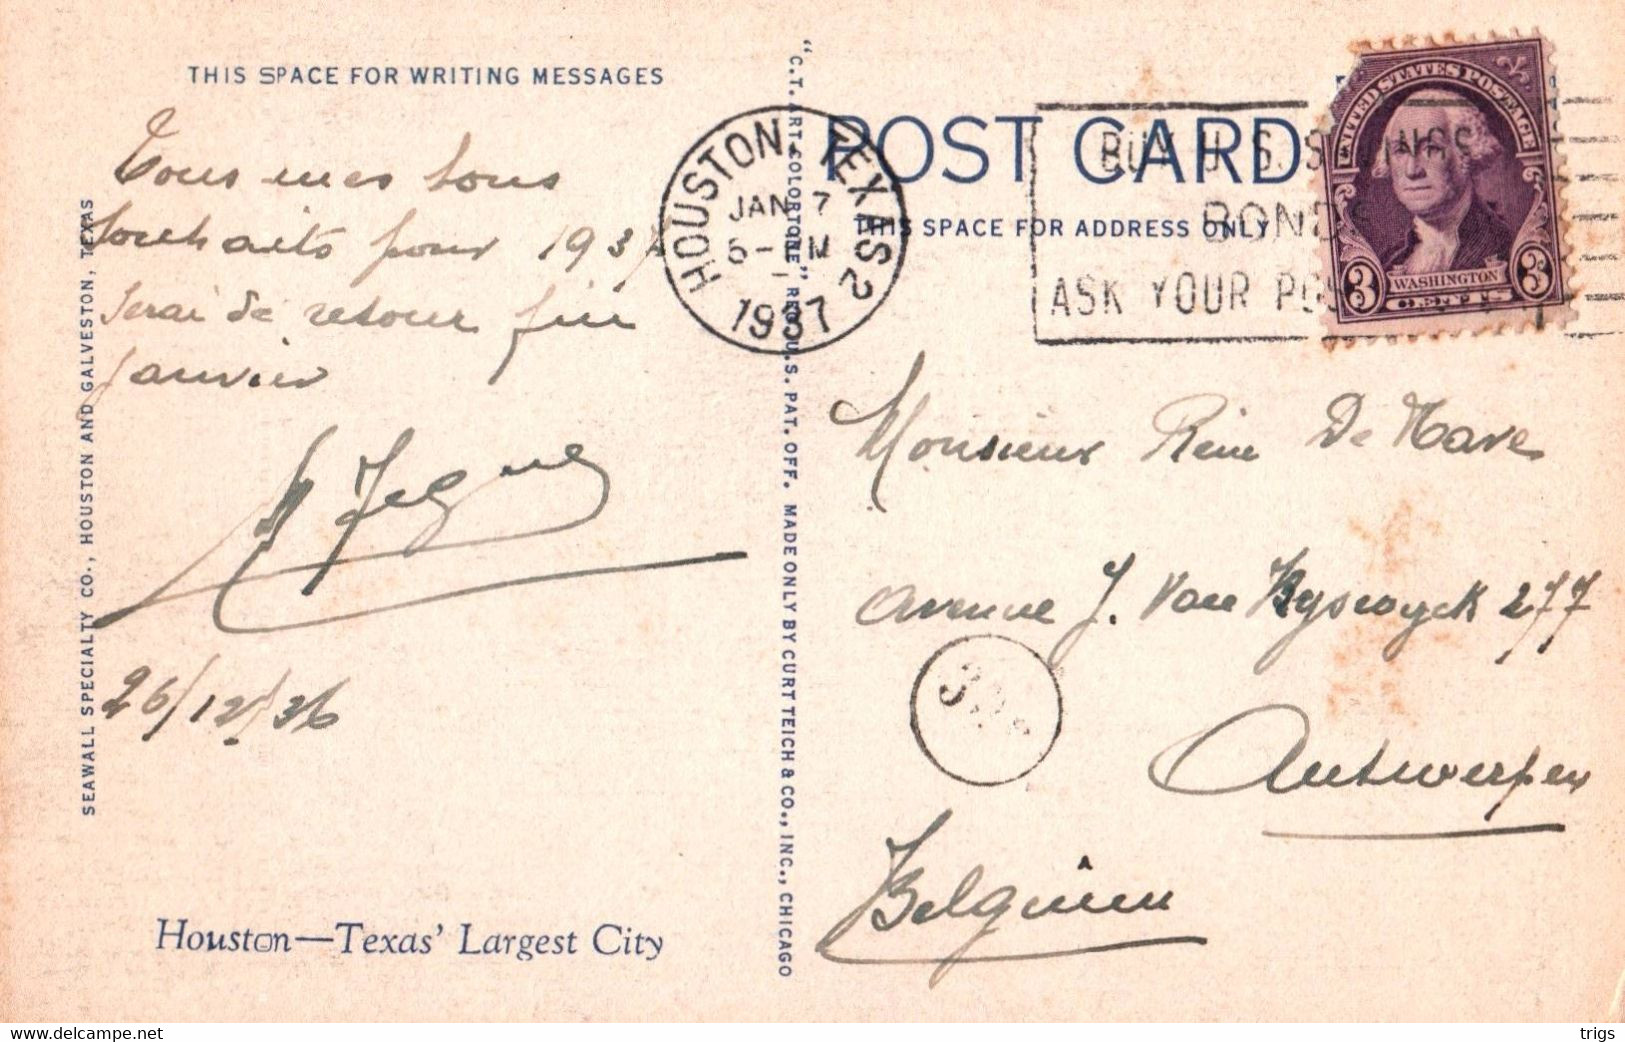 THIS SPACE FOR WRITING MESSAGES
Tous mes bons
souhaits pour 1937
Serai de retour fin
janvier
26/12/36
Houston—Texas' Largest City
SEAWALL SPECIALTY CO., HOUSTON AND GALVESTON, TEXAS
"C.T. ART-COLORTONE" REG. U.S. PAT. OFF. MADE ONLY BY CURT TEICH & CO., INC., CHICAGO
HOUSTON, TEXAS 2
JAN 7
5-PM
1937
POST CARD
THIS SPACE FOR ADDRESS ONLY
BUY U.S. SAVINGS
BONDS
ASK YOUR POS
UNITED STATES POSTAGE
3 WASHINGTON 3
CENTS
Monsieur René De
Avenue J. Van Ryswyck 277
Antwerpen
Belgium
www.delcampe.net
trigs